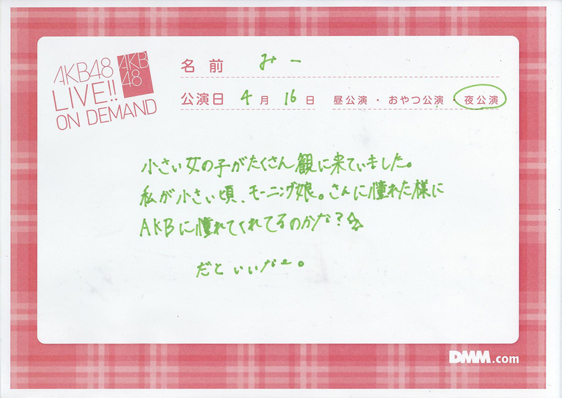 AKB48
LIVE!!
ON DEMAND
AKB
48
名前 みー
公演日 4月16日 昼公演・おやつ公演・夜公演
小さい女の子がたくさん観に来ていました。
私が小さい頃、モーニング娘。さんに憧れた様に
AKBに憧れてくれてるのかな?☆
だといいなー。
DMM.com